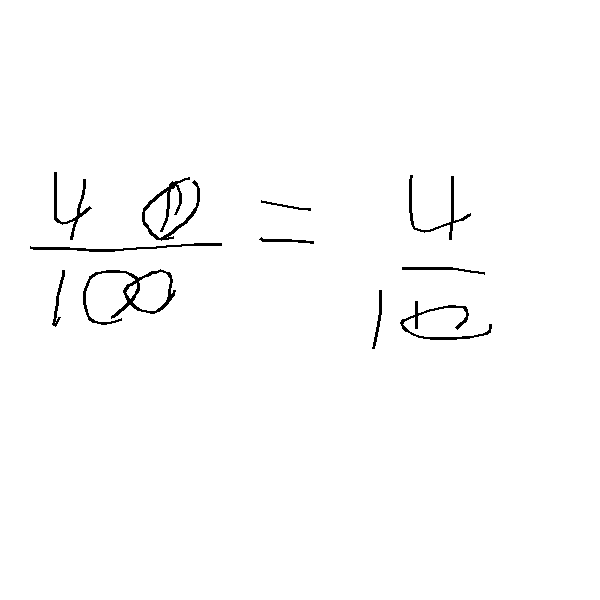 40/100 = 4/10